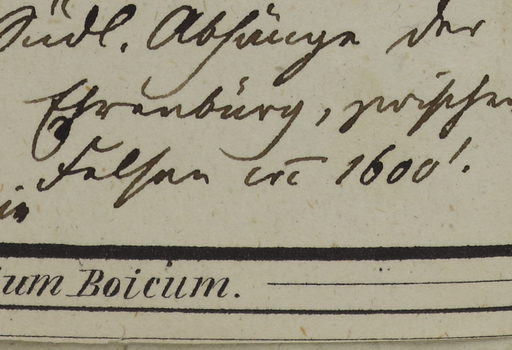 Südl. Abhänge der
Ehrenbürg, zwischen
Felsen crc 1600'.
in
ium Boicum.